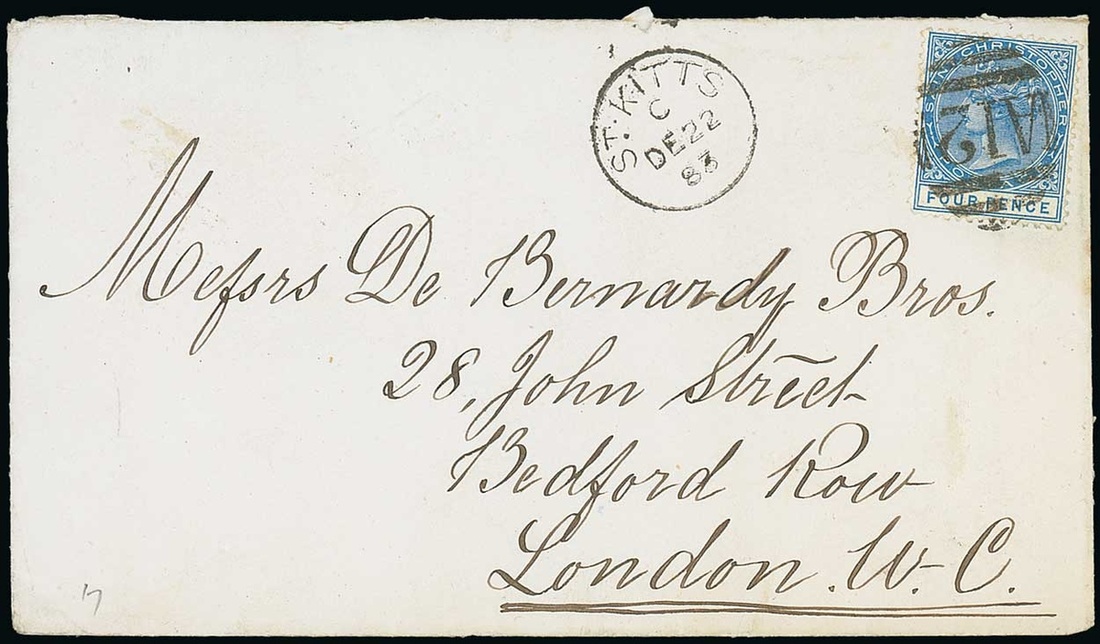 ST. KITTS
C
DE 22
83
SAINT CHRISTOPHER
A12
FOUR PENCE
Messrs De Bernardy Bros.
28, John Street
Bedford Row
London. W. C.